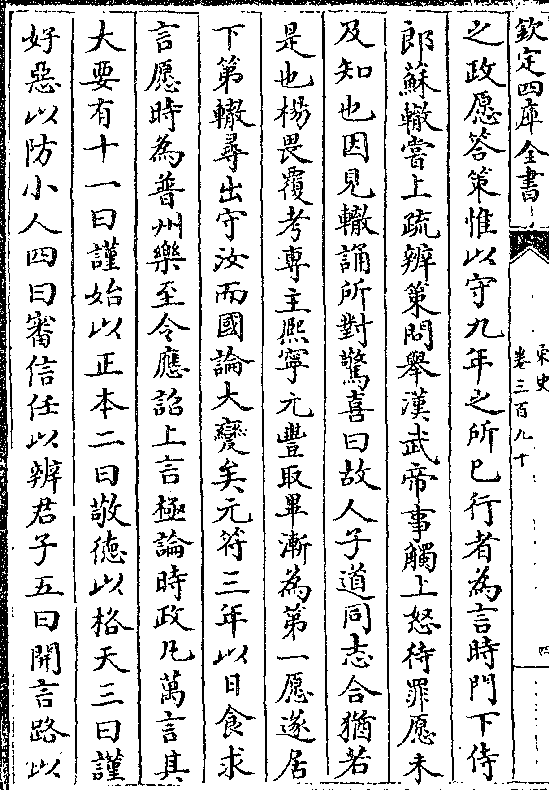 欽定四庫全書
宋史
卷三百九十
四
之政愿答策惟以守九年之所已行者為言時門下侍
郎蘇轍嘗上疏辨策問舉漢武帝事觸上怒待罪愿未
及知也因見轍誦所對驚喜曰故人子道同志合猶若
是也楊畏覆考專主熙寧元豐取畢漸為第一愿遂居
下第轍尋出守汝而國論大變矣元符三年以日食求
言愿時為普州樂至令應詔上言極論時政凡萬言其
大要有十一曰謹始以正本二曰敬德以格天三曰謹
好惡以防小人四曰審信任以辨君子五曰開言路以